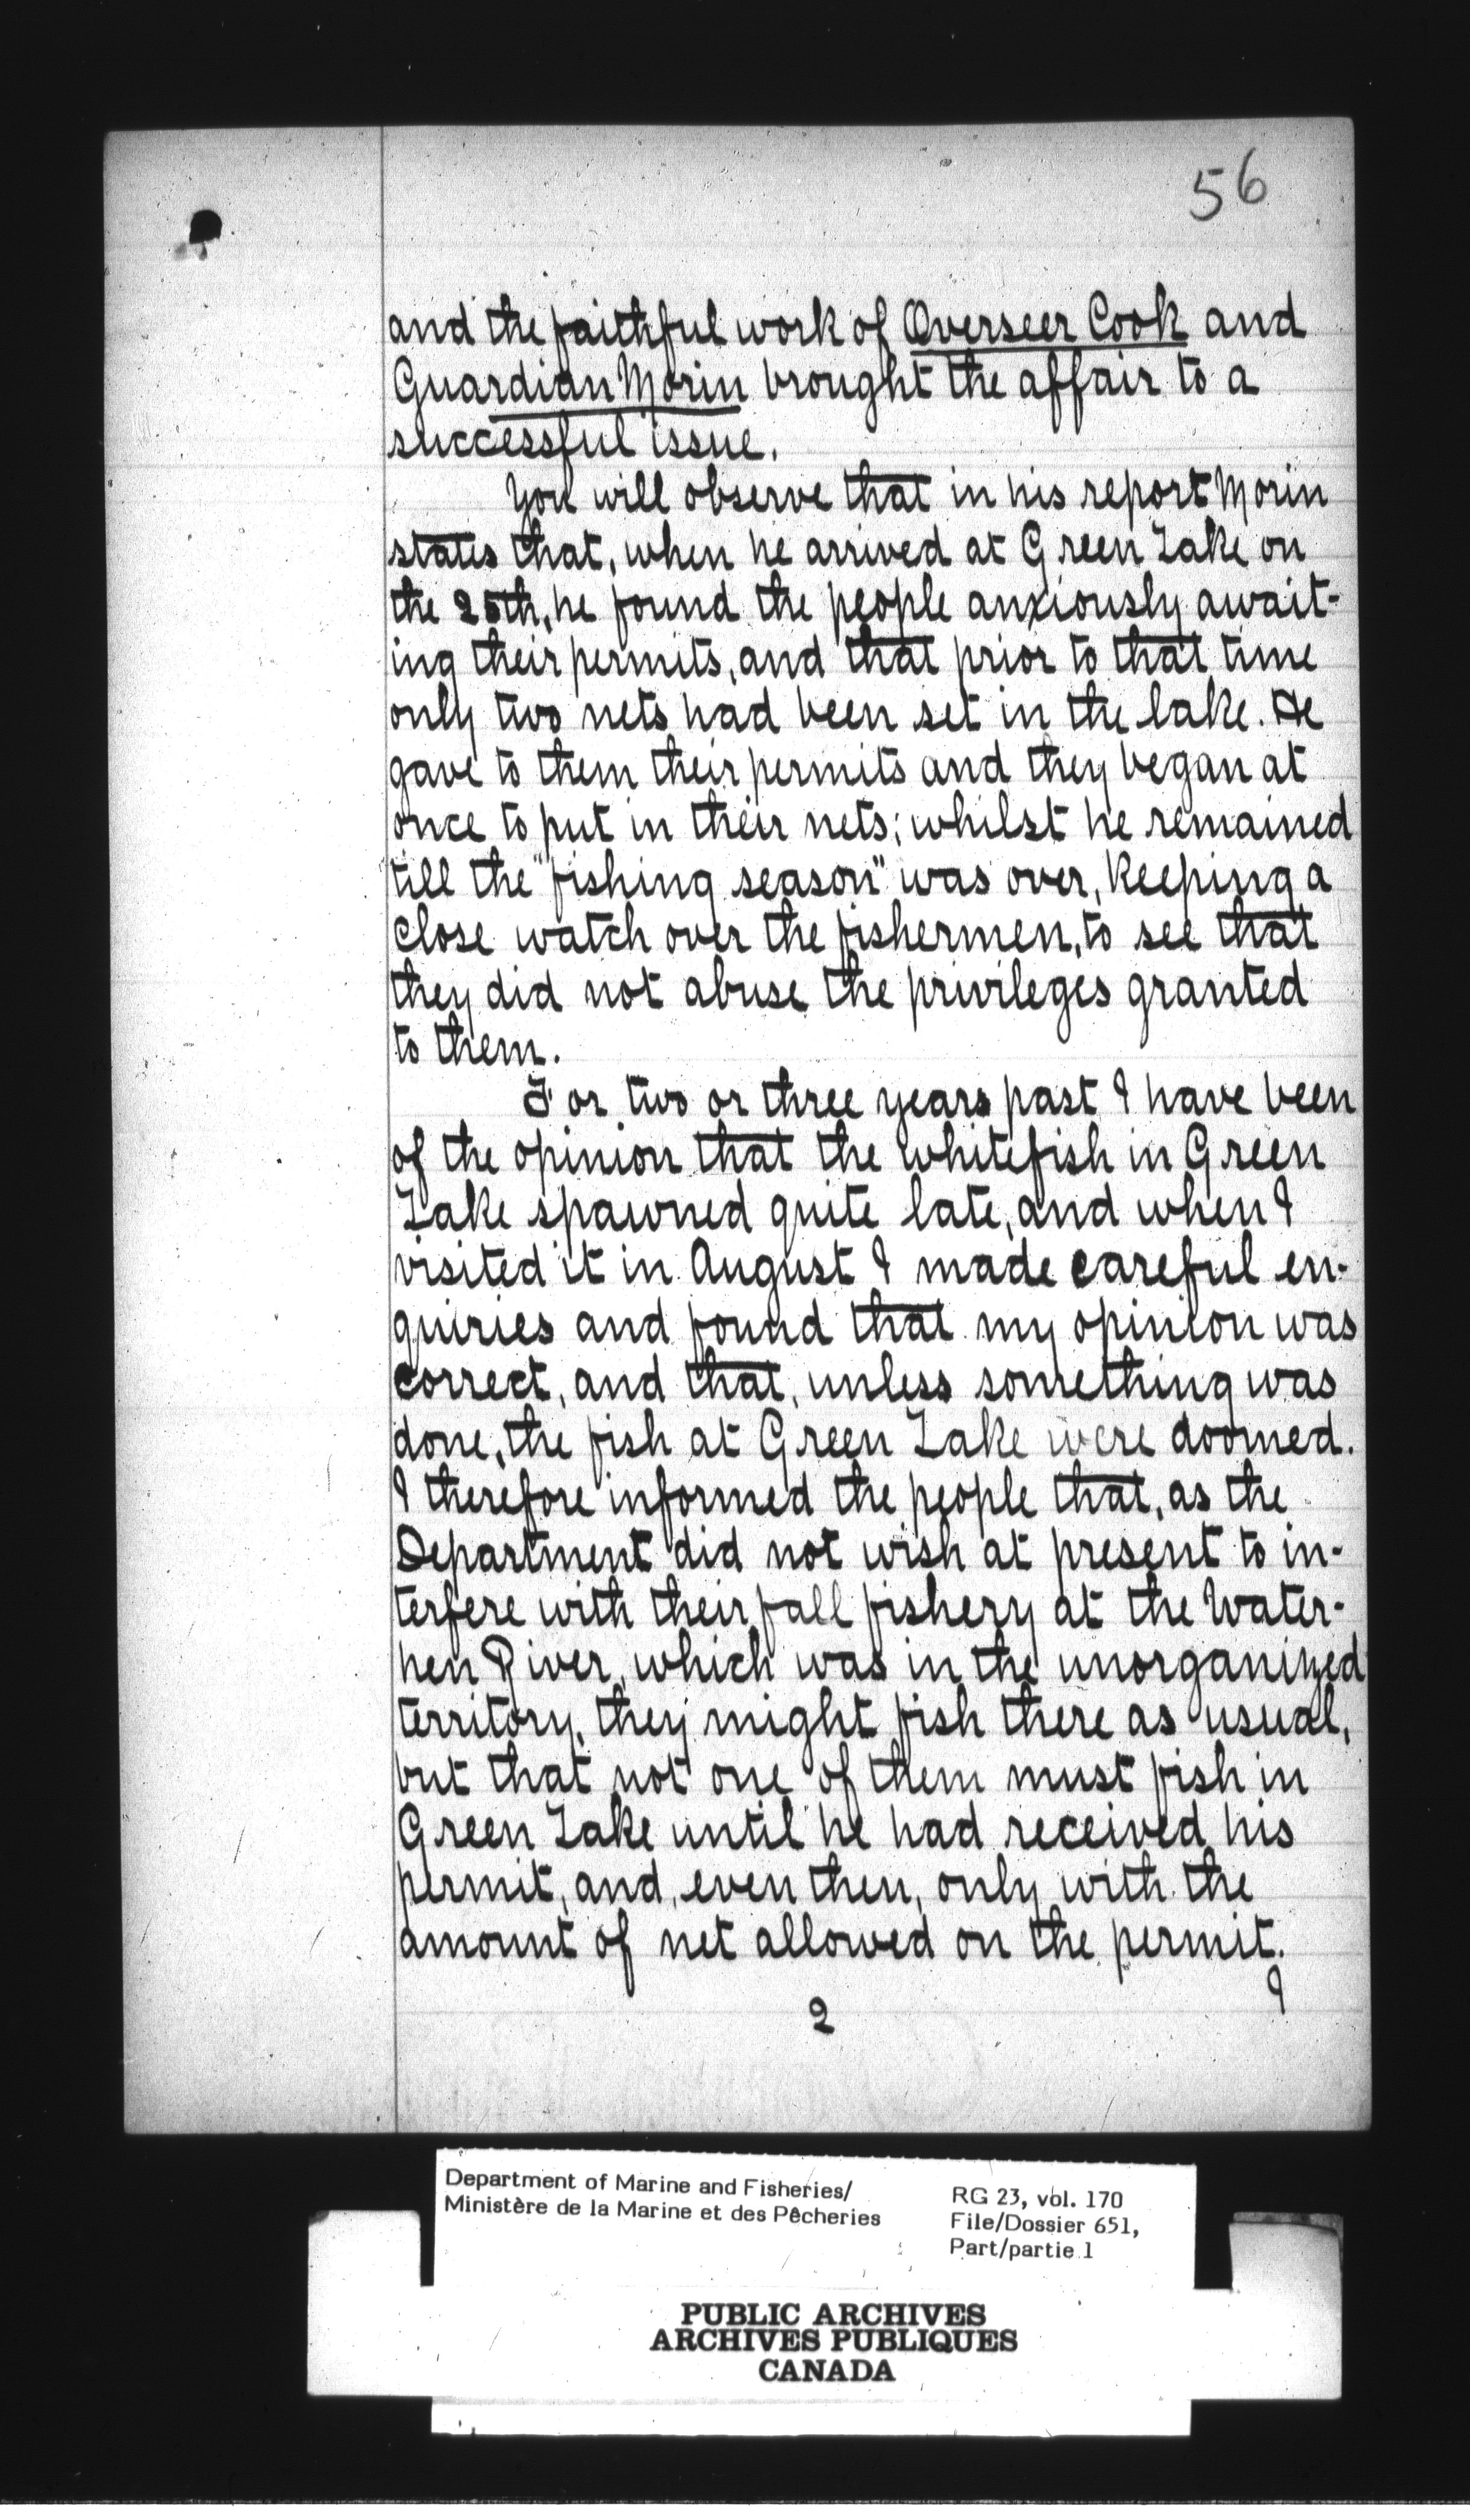 56
and the faithful work of Overseer Cook and
Guardian Morin brought the affair to a
successful issue.
You will observe that in his report Morin
states that, when he arrived at Green Lake on
the 25th, he found the people anxiously await-
ing their permits, and that prior to that time
only two nets had been set in the lake. He
gave to them their permits and they began at
once to put in their nets; whilst he remained
till the "fishing season" was over, keeping a
close watch over the fishermen, to see that
they did not abuse the privileges granted
to them.
For two or three years past I have been
of the opinion that the whitefish in Green
Lake spawned quite late, and when I
visited it in August I made careful en-
quiries and found that my opinion was
correct, and that, unless something was
done, the fish at Green Lake were doomed.
I therefore informed the people that, as the
Department did not wish at present to in-
terfere with their fall fishery at the Water-
hen River, which was in the unorganized
territory, they might fish there as usual,
but that not one of them must fish in
Green Lake until he had received his
permit, and, even then, only with the
amount of net allowed on the permit.
I
2
Department of Marine and Fisheries/
Ministère de la Marine et des Pêcheries
RG 23, vol. 170
File/Dossier 651,
Part/partie 1
PUBLIC ARCHIVES
ARCHIVES PUBLIQUES
CANADA